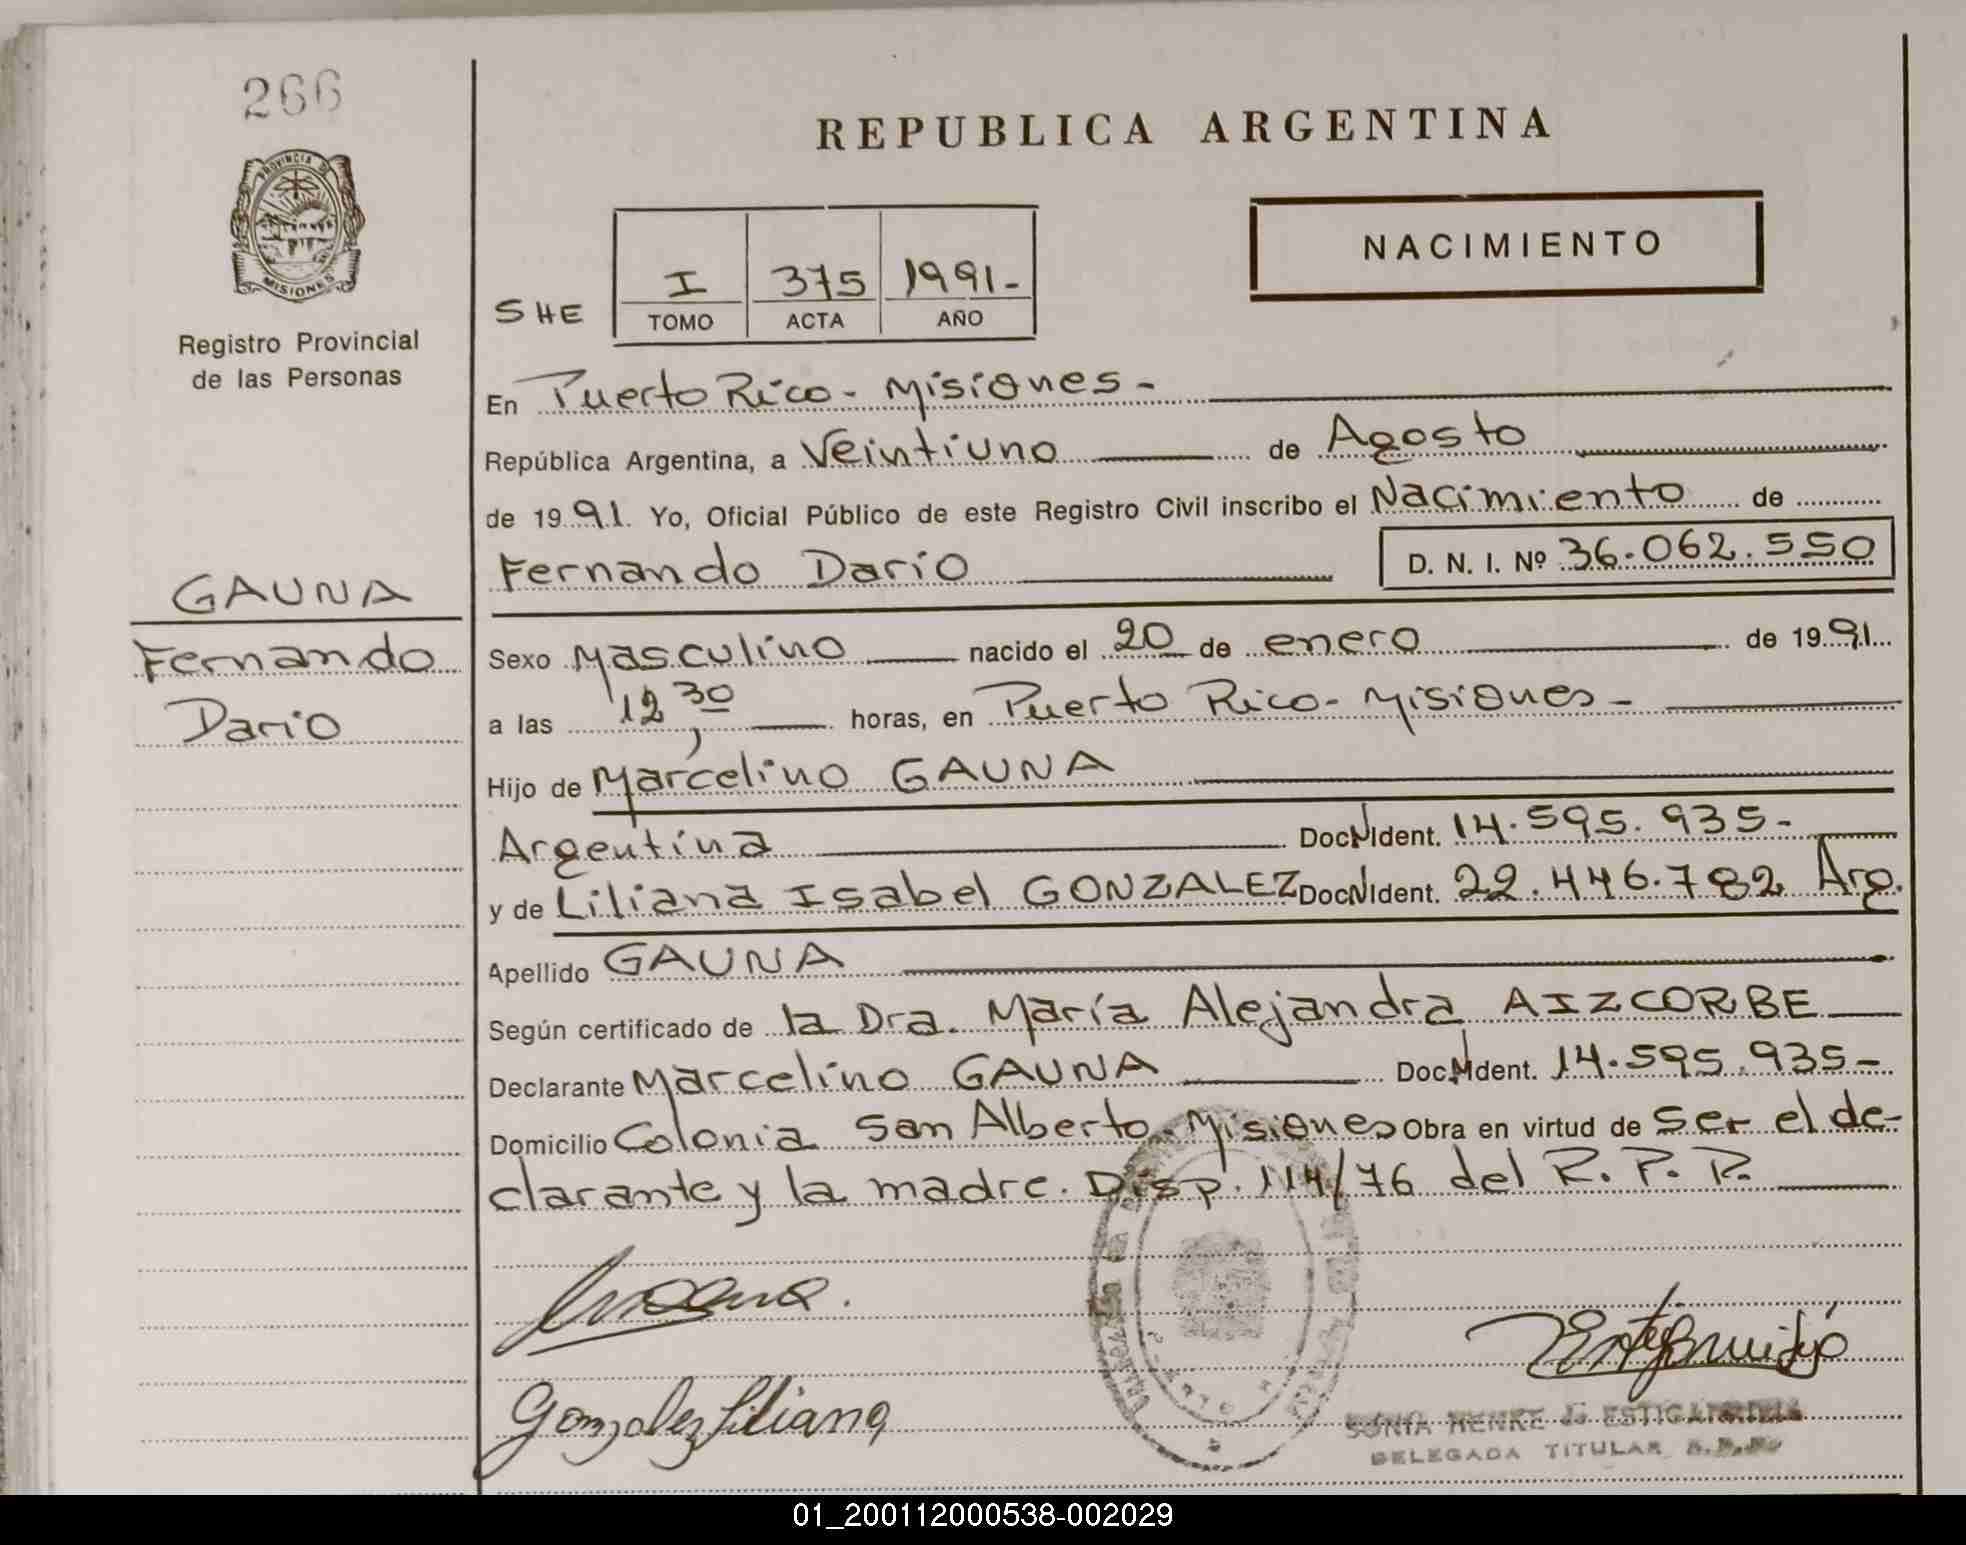 266
PROVINCIA DE
MISIONES
Registro Provincial
de las Personas
GAUNA
Fernando
Dario
REPUBLICA ARGENTINA
NACIMIENTO
SHE
I 375 1991-
TOMO ACTA AÑO
En Puerto Rico - Misiones -
República Argentina, a Veintiuno de Agosto
de 1991. Yo, Oficial Público de este Registro Civil inscribo el Nacimiento de
Fernando Darío D. N. I. Nº 36.062.550
Sexo Masculino nacido el 20 de enero de 1991
a las 12,30 horas, en Puerto Rico - Misiones -
Hijo de Marcelino GAUNA
Argentina Doc.N.Ident. 14.595.935-
y de Liliana Isabel GONZALEZ Doc.N.Ident. 22.446.782 Arg.
Apellido GAUNA
Según certificado de la Dra. María Alejandra AIZCORBE
Declarante Marcelino GAUNA Doc.N.Ident. 14.595.935-
Domicilio Colonia San Alberto - Misiones Obra en virtud de ser el de-
clarante y la madre. Disp. 114/76 del R. P. P.
Gonzalez Liliana
SONIA HENKE de ESTIGARRIBIA
DELEGADA TITULAR
01_200112000538-002029